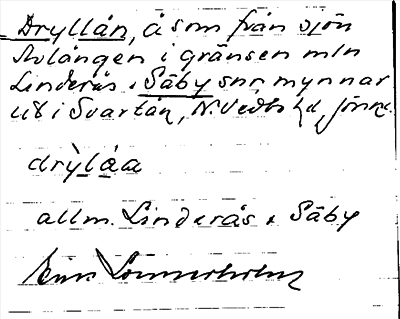 Dryllån, å som från sjön
Avlången i gränsen mln
Linderås o Säby snr mynnar
ut i Svartån, N. Vedbo hd, Jönk.
drỳlåa
allm. Linderås o Säby
Sommerholm